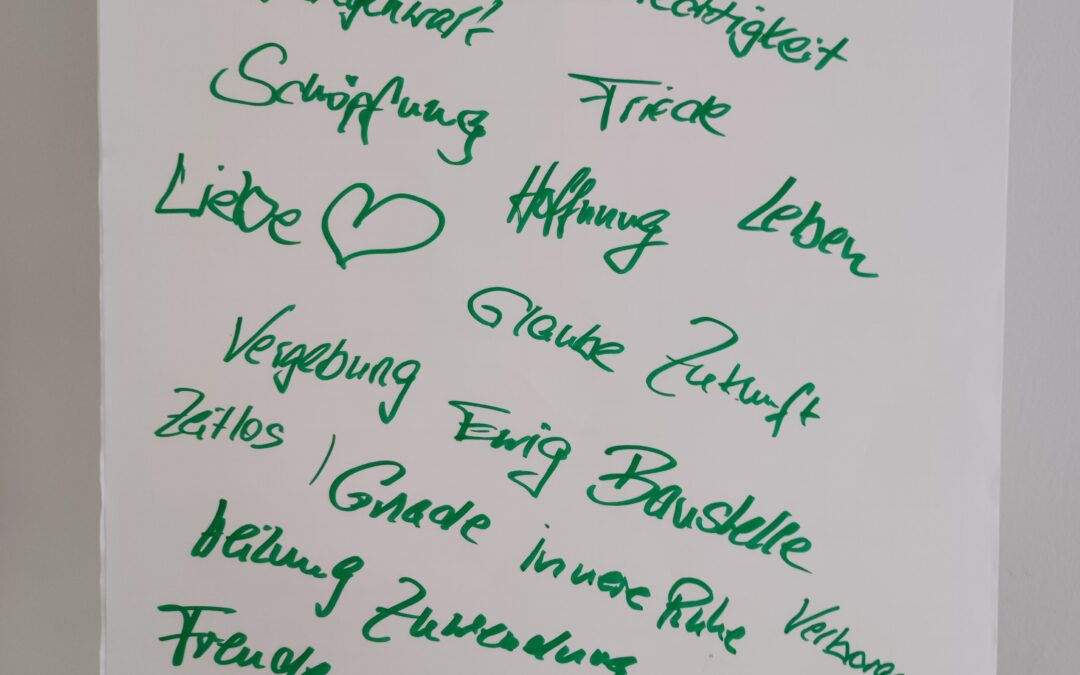 Schöpfung Friede
Liebe Hoffnung Leben
Glaube Zukunft
Vergebung
Zeitlos Ewig Baustelle
Gnade innere Ruhe
Heilung Zuwendung
Freude